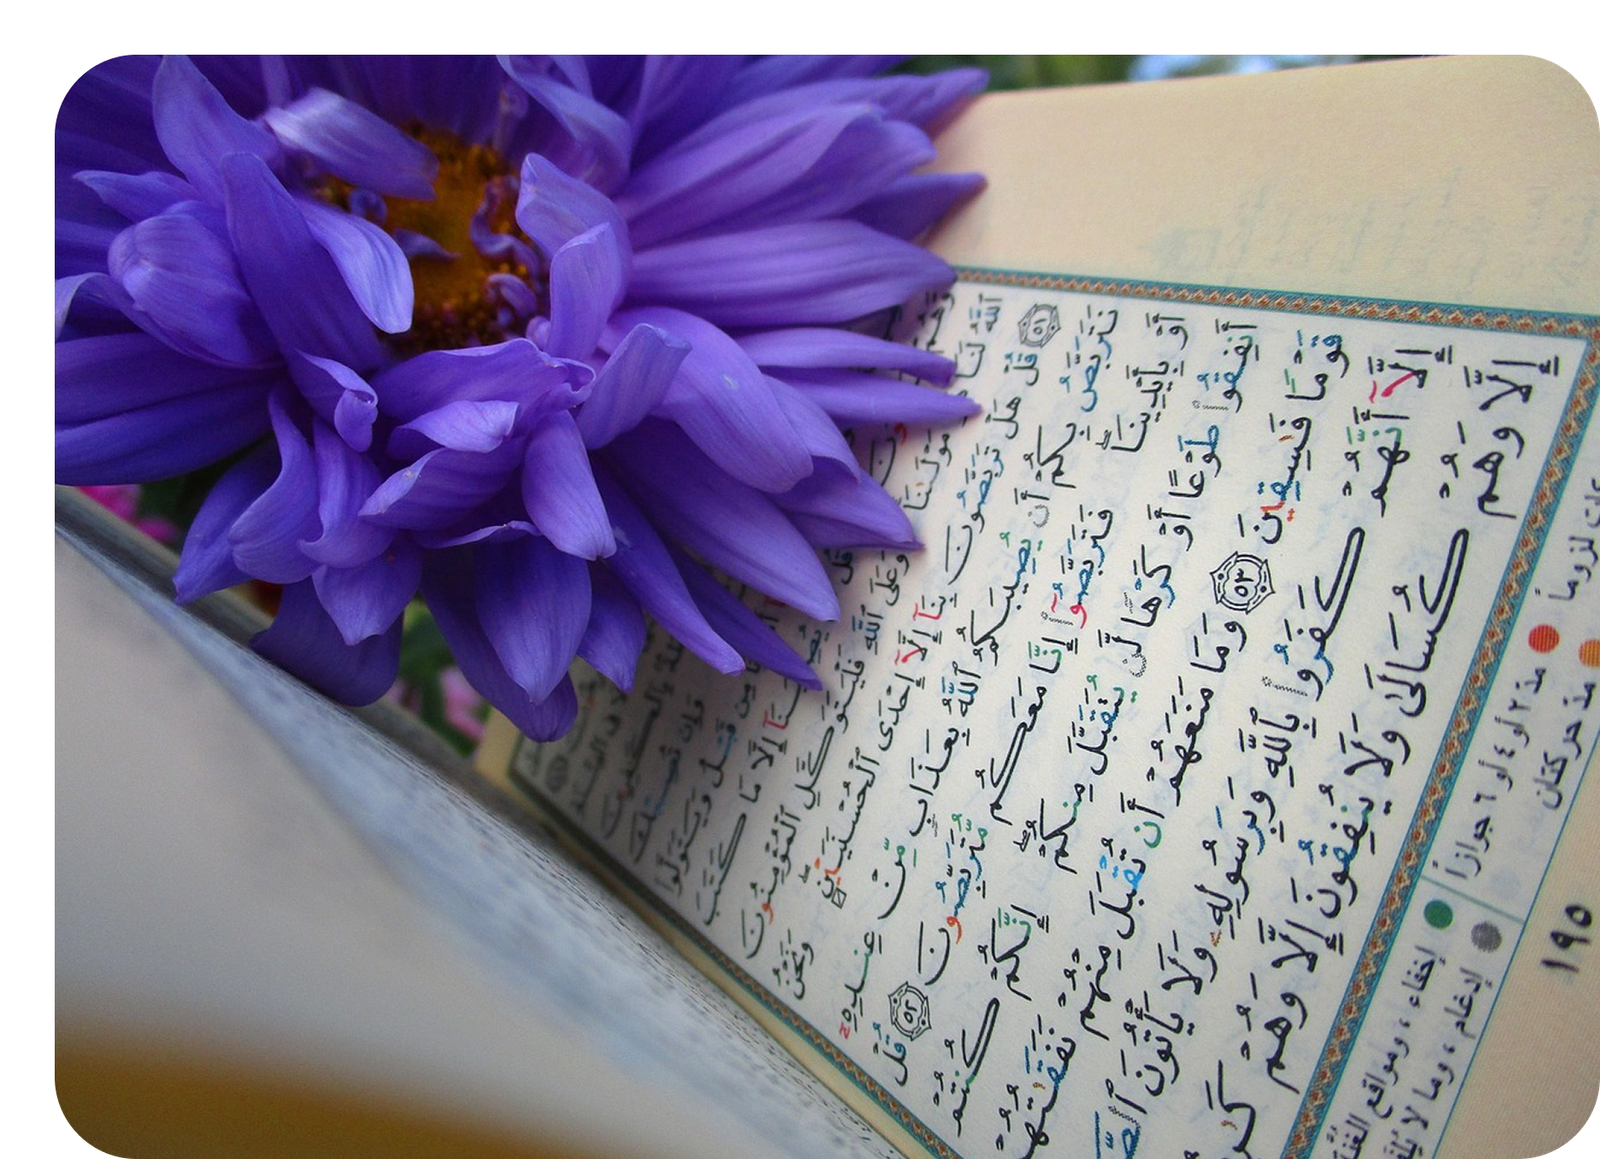 قَبْلُ وَيَتَوَلَّوا
إِلَّا مَا كَتَبَ
ٱللَّهُ لَنَا مَوْلَىٰنَا وَعَلَى ٱللَّهِ فَلْيَتَوَكَّلِ ٱلْمُؤْمِنُونَ
٥١ قُلْ هَلْ تَرَبَّصُونَ بِنَآ إِلَّآ إِحْدَى ٱلْحُسْنَيَيْنِ ۖ وَنَحْنُ
نَتَرَبَّصُ بِكُمْ أَن يُصِيبَكُمُ ٱللَّهُ بِعَذَابٍ مِّنْ عِندِهِۦٓ
أَوْ بِأَيْدِينَا ۖ فَتَرَبَّصُوٓا۟ إِنَّا مَعَكُم مُّتَرَبِّصُونَ ٥٢ قُلْ
أَنفِقُوا۟ طَوْعًا أَوْ كَرْهًا لَّن يُتَقَبَّلَ مِنكُمْ ۖ إِنَّكُمْ كُنتُمْ
قَوْمًا فَٰسِقِينَ ٥٣ وَمَا مَنَعَهُمْ أَن تُقْبَلَ مِنْهُمْ نَفَقَٰتُهُمْ
إِلَّآ أَنَّهُمْ كَفَرُوا۟ بِٱللَّهِ وَبِرَسُولِهِۦ وَلَا يَأْتُونَ ٱلصَّ
إِلَّا وَهُمْ كُسَالَىٰ وَلَا يُنفِقُونَ إِلَّا وَهُمْ كَٰرِ
لزوماً مد ٢ أو ٤ أو ٦ جوازاً
مد حركتان
إخفاء، ومواقع الغنّة
إدغام، وما لا يُلفَظ
١٩٥